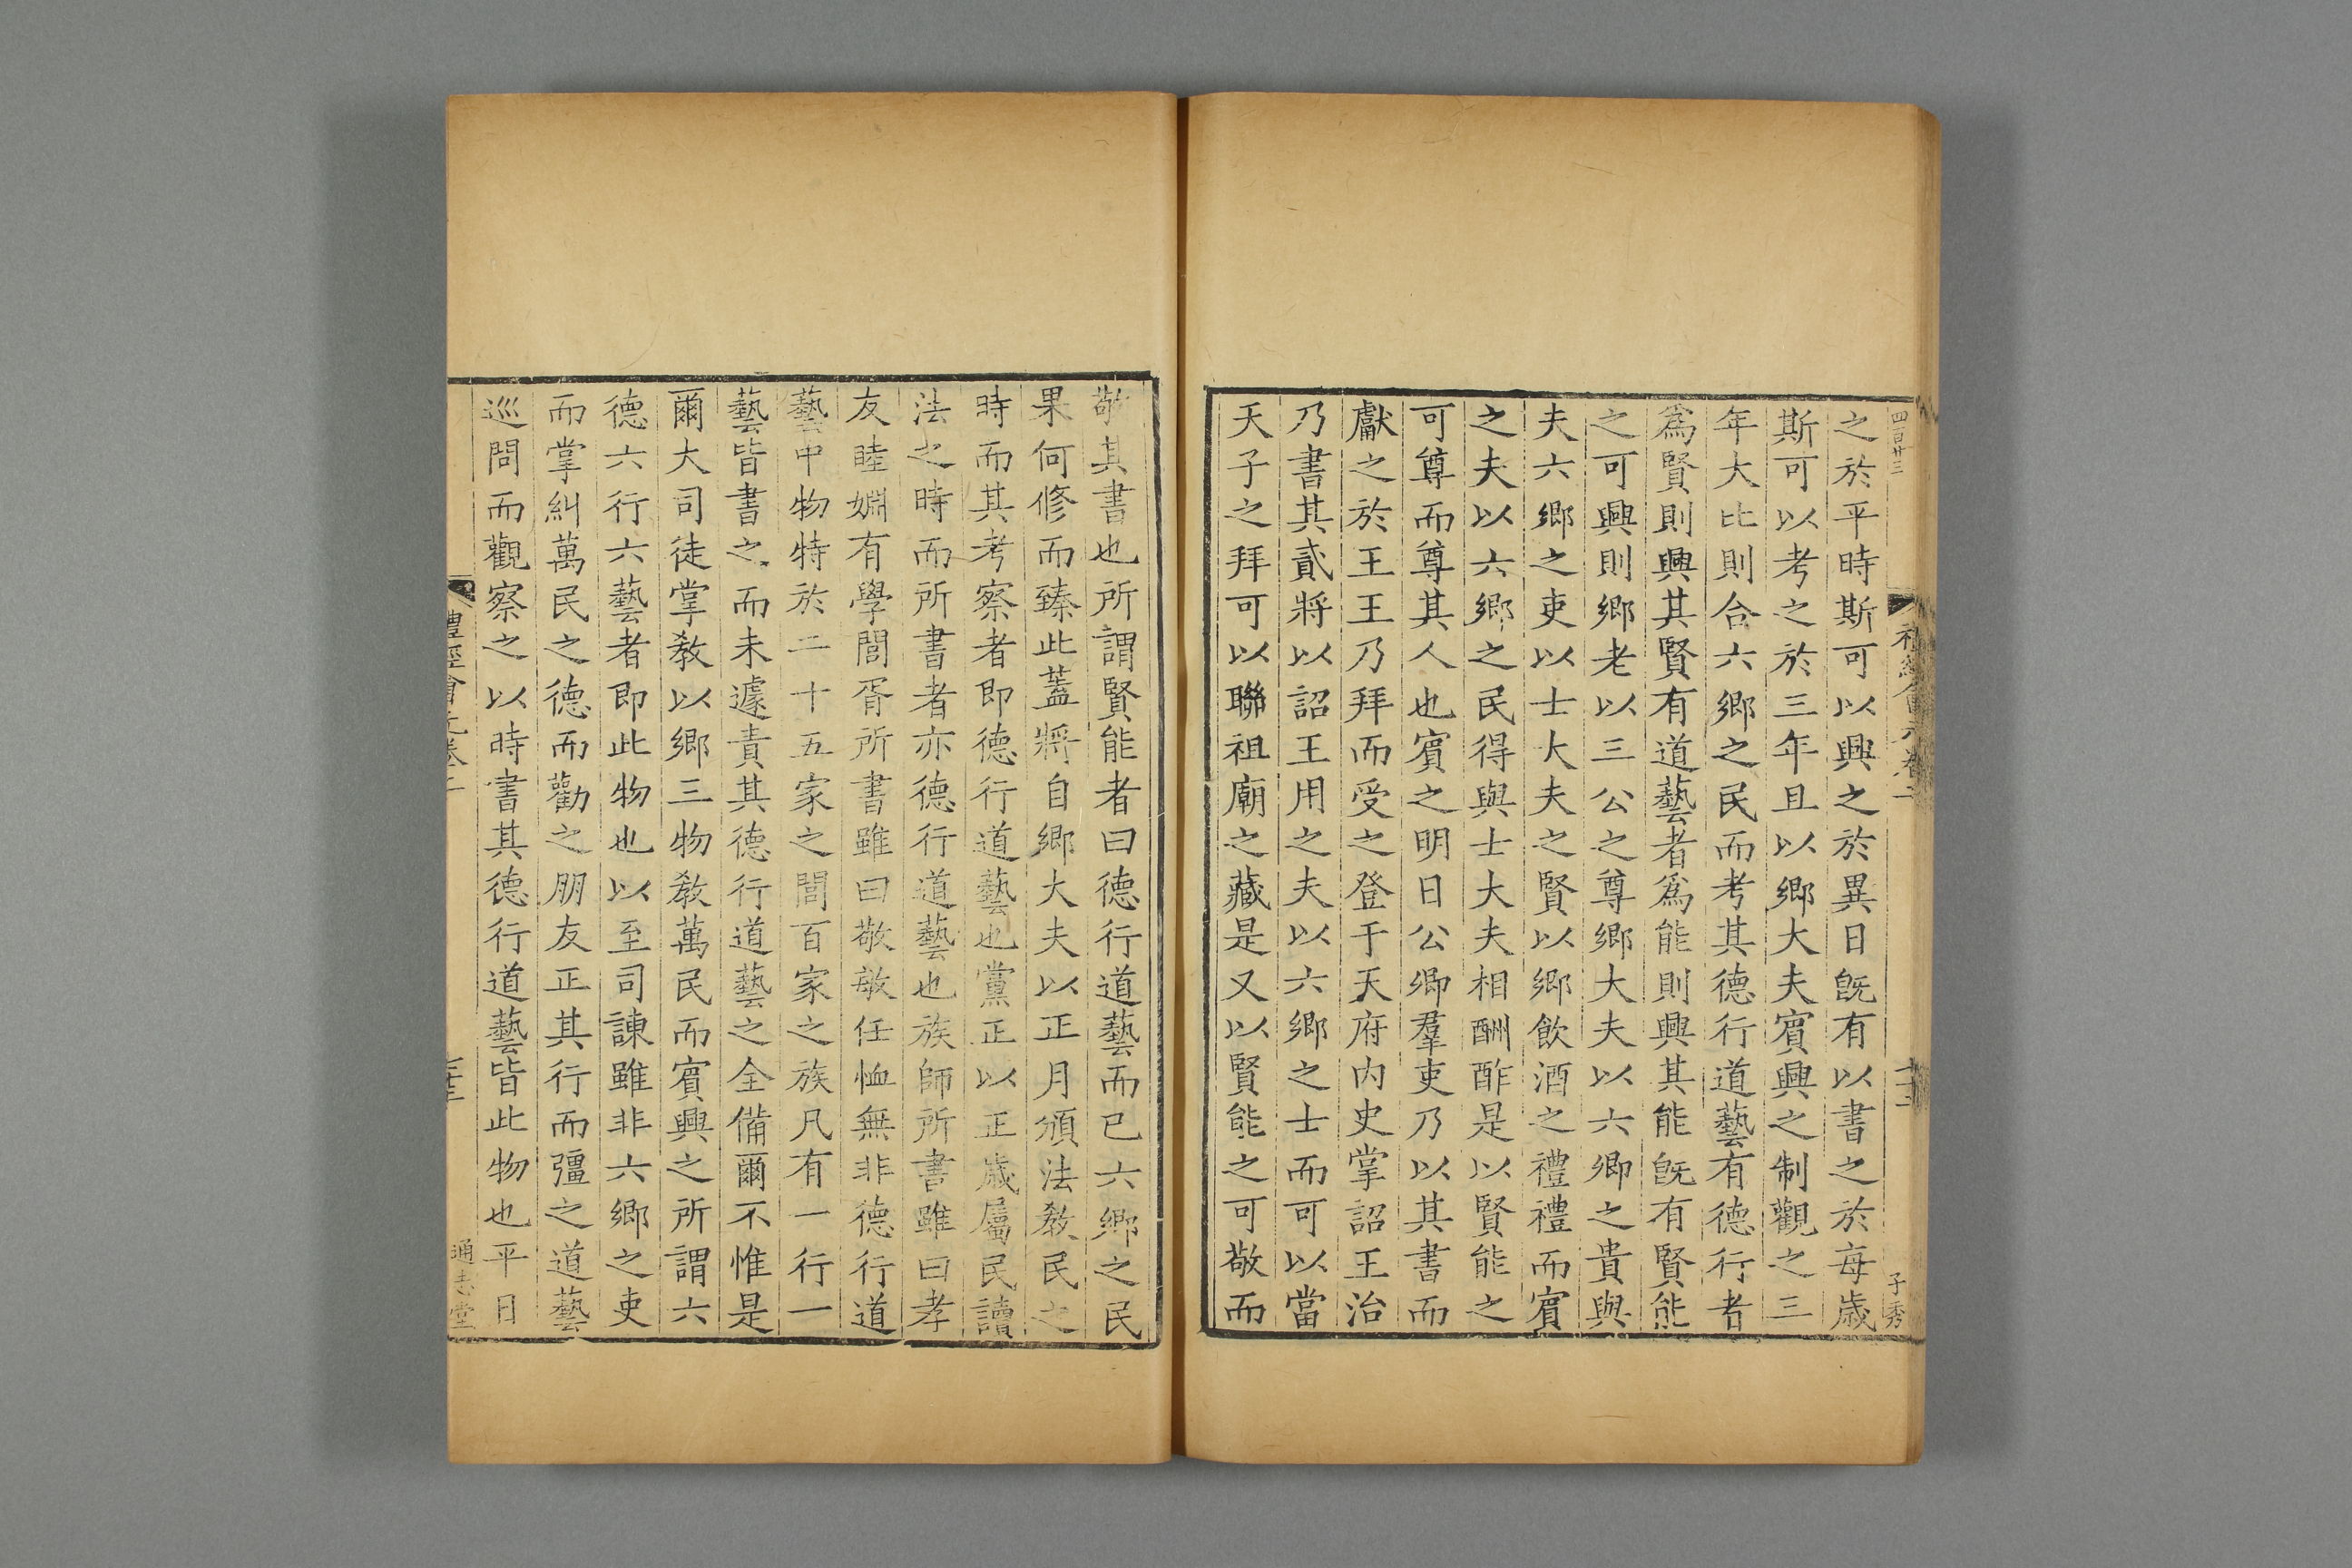 四百廿三
子秀
之於平時斯可以興之於異日旣有以書之於每歳
斯可以考之於三年且以鄉大夫賔興之制觀之三
年大比則合六鄉之民而考其德行道藝有德行者
爲賢則興其賢有道藝者爲能則興其能旣有賢能
之可興則鄉老以三公之尊鄉大夫以六卿之貴與
夫六鄉之吏以士大夫之賢以鄉飲酒之禮禮而賔
之夫以六鄉之民得與士大夫相酬酢是以賢能之
可尊而尊其人也賔之明日公卿羣吏乃以其書而
獻之於王王乃拜而受之登于天府内史掌詔王治
乃書其貳將以詔王用之夫以六鄉之士而可以當
天子之拜可以聯祖廟之藏是又以賢能之可敬而
敬其書也所謂賢能者曰德行道藝而已六鄉之民
果何修而臻此蓋將自鄉大夫以正月頒法教民之
時而其考察者即德行道藝也黨正以正歳屬民讀
法之時而所書者亦德行道藝也族師所書雖曰孝
友睦婣有學閭胥所書雖曰敬敏任恤無非德行道
藝中物特於二十五家之閭百家之族凡有一行一
藝皆書之而未遽責其德行道藝之全備爾不惟是
爾大司徒掌教以鄉三物教萬民而賔興之所謂六
德六行六藝者即此物也以至司諫雖非六鄉之吏
而掌糾萬民之德而勸之朋友正其行而彊之道藝
巡問而觀察之以時書其德行道藝皆此物也平日
禮經會元卷二
通志堂